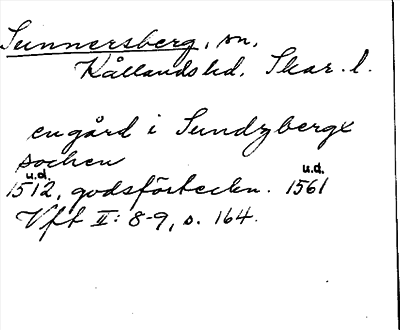 Sunnersberg, sn,
Kållands hd. Skar. l.
en gård i Sundzbergx
sochen
u.d. u.d.
1512, godsförteckn. 1561
Vft II: 8-9, s. 164.